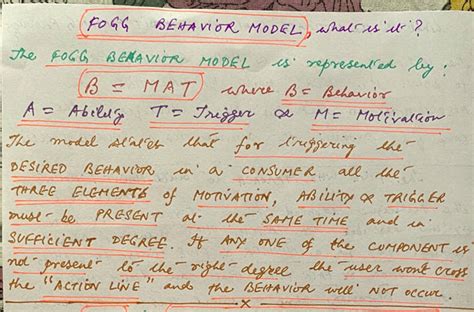 FOGG BEHAVIOR MODEL, what is it?
The FOGG BEHAVIOR MODEL is represented by:
B = MAT where B = Behavior
A = Ability T = Trigger & M = Motivation
The model states that for triggering the
DESIRED BEHAVIOR in a CONSUMER all the
THREE ELEMENTS of MOTIVATION, ABILITY & TRIGGER
must be PRESENT at the SAME TIME and in
SUFFICIENT DEGREE. If ANY ONE of the COMPONENT is
not present to the right degree the user won't cross
the "ACTION LINE" and the BEHAVIOR will NOT OCCUR.
x